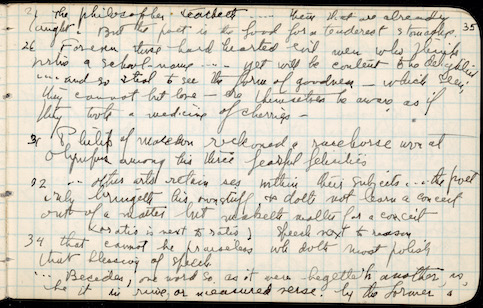 21 The philosopher teacheth .... them that are already 35
taught But the poet is the food for a tenderest stomachs.
26 For even those hard hearted evil men who think
virtue a school-name .... yet will be content to be delighted
.... and so steal to see the form of goodness - which seen
they cannot but love - ere themselves be aware, as if
they took a medicine of cherries -
31 Philip of Macedon reckoned a racehorse won at
Olympus among his three fearful felicities
32 ... other arts retain ses within their subjects ... the poet
only bringeth his own stuff, & doth not learn a conceit
out of a matter but maketh matter for a conceit
(oratio is next to ratio) speech next to reason
34 that cannot be praiseless wh doth most polish
that blessing of speech
... Besides, one word so as it were begetteth another, as,
be it in rime or measured verse. by the former a